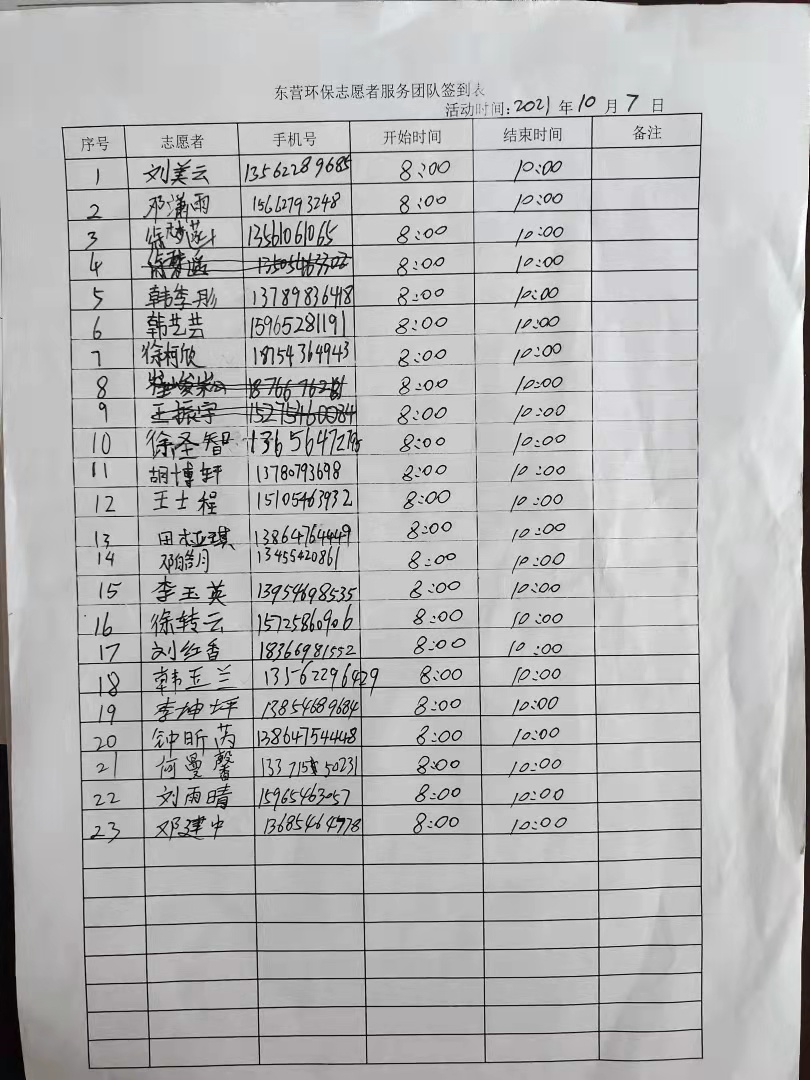 东营环保志愿者服务团队签到表
活动时间:2021年10月7日
序号 志愿者 手机号 开始时间 结束时间 备注
1 刘美云 13562289685 8:00 10:00
2 邓潇雨 15662793248 8:00 10:00
3 徐 13561061065 8:00 10:00
4 13505463302 8:00 10:00
5 韩季彤 13789836418 8:00 10:00
6 韩艺芸 15965281191 8:00 10:00
7 徐柯欣 18754364943 8:00 10:00
8 8:00 10:00
9 王振宇 15275460084 8:00 10:00
10 徐圣智 13656472795 8:00 10:00
11 胡博轩 13780793698 8:00 10:00
12 王士程 15105463932 8:00 10:00
13 田桠琪 13864764449 8:00 10:00
14 邓皓月 13455420861 8:00 10:00
15 李玉英 13954698535 8:00 10:00
16 徐转云 15725860906 8:00 10:00
17 刘红香 18366981552 8:00 10:00
18 韩玉兰 13562296429 8:00 10:00
19 李坤坪 13854689684 8:00 10:00
20 钟昕芮 13864754448 8:00 10:00
21 何曼馨 13371550231 8:00 10:00
22 刘雨晴 15965463057 8:00 10:00
23 邓建中 13685464778 8:00 10:00